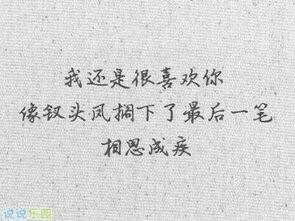 我还是很喜欢你
像钗头凤搁下了最后一笔
相思成疾
说说乐园